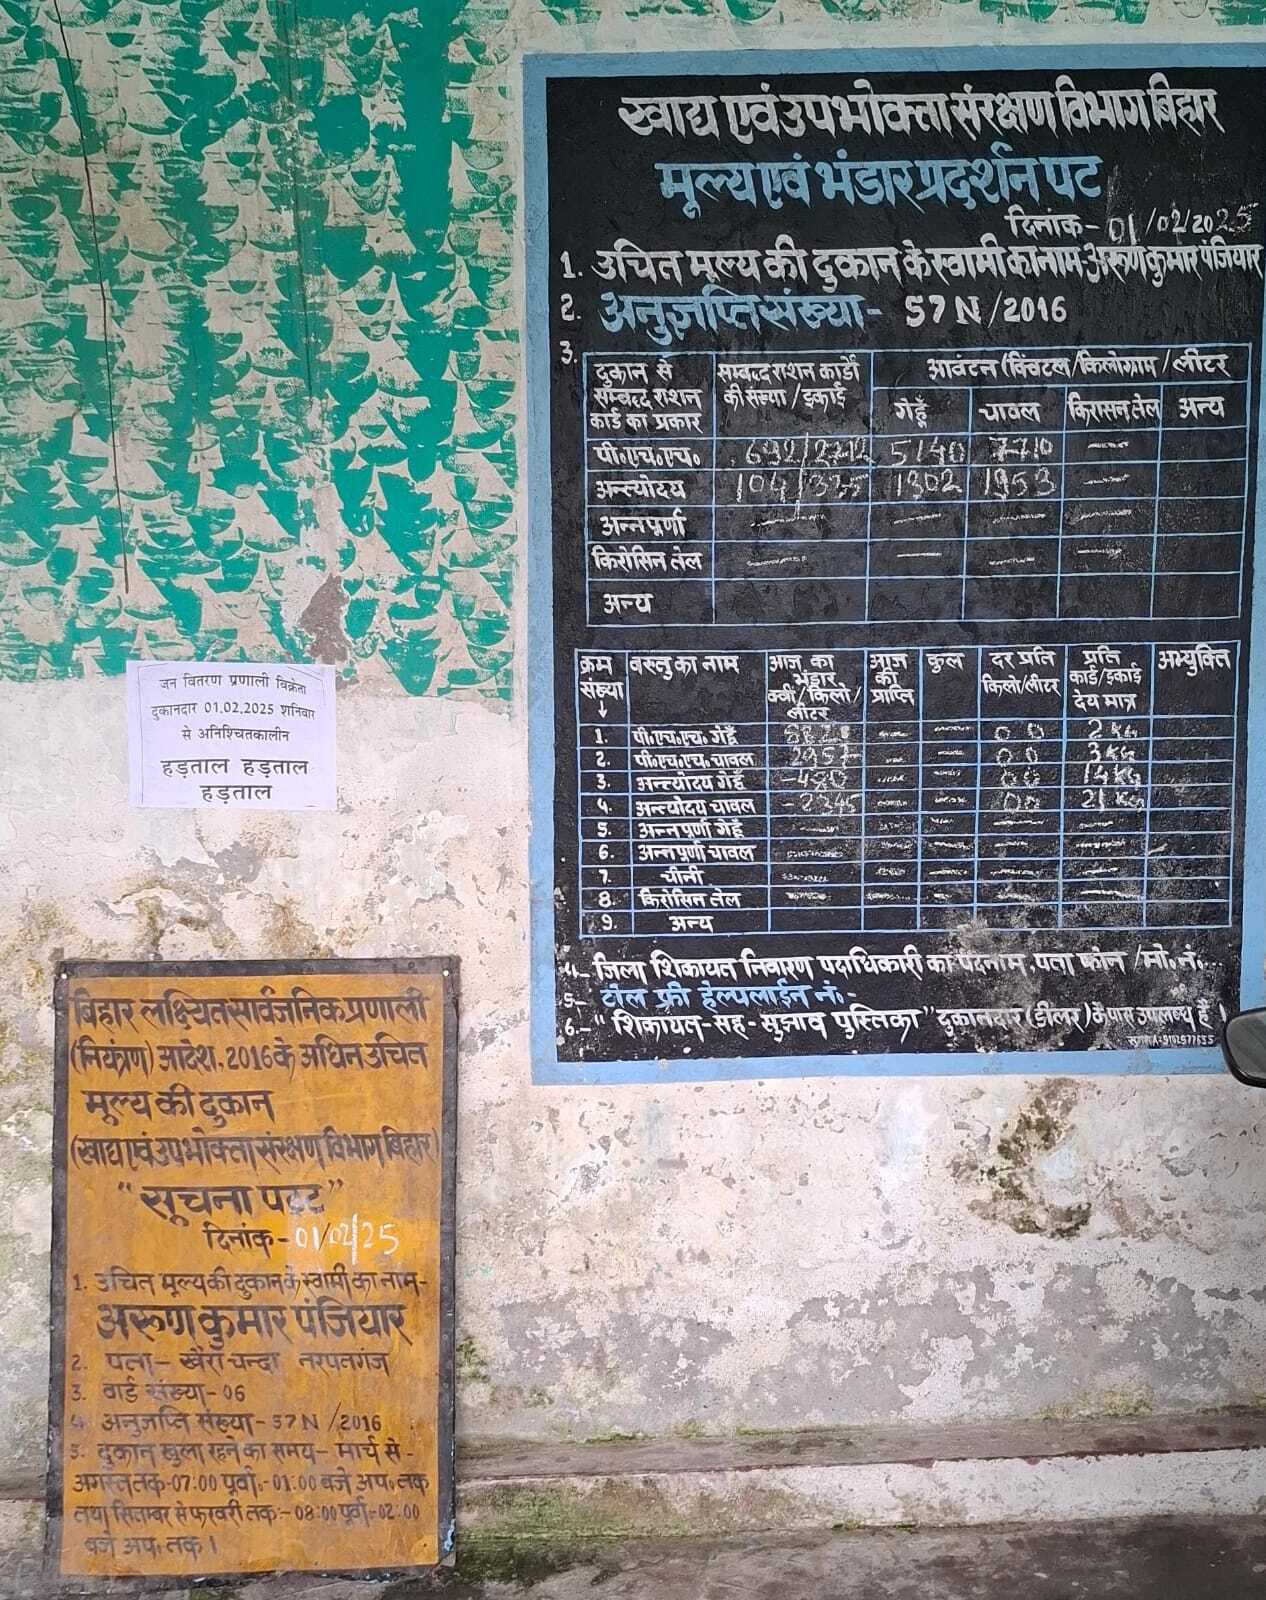 खाद्य एवं उपभोक्ता संरक्षण विभाग बिहार
मूल्य एवं भंडार प्रदर्शन पट
दिनांक- 01/02/2025
1. उचित मूल्य की दुकान के स्वामी का नाम अरूण कुमार पंजियार
2. अनुज्ञप्ति संख्या- 57N/2016
3.
दुकान से सम्बद्ध राशन कार्ड का प्रकार | सम्बद्ध राशन कार्डों की संख्या/इकाई | आवंटन (क्विंटल/किलोग्राम/लीटर
गेहूँ | चावल | किरासन तेल | अन्य
पी०एच०एच० 692/2712 5140 7710 —
अन्त्योदय 104/335 1302 1953 —
अन्नपूर्णा — — — —
किरोसिन तेल — — — —
अन्य
क्रम संख्या ↓ | वस्तु का नाम | आज का भंडार क्वीं/किलो/लीटर | आज की प्राप्ति | कुल | दर प्रति किलो/लीटर | प्रति कार्ड/इकाई देय मात्र | अभ्युक्ति
1. पी०एच०एच० गेहूँ — — 00 2 KG
2. पी०एच०एच० चावल 2957 — — 00 3 KG
3. अन्त्योदय गेहूँ -490 — — 00 14 KG
4. अन्त्योदय चावल -2345 — — 00 21 KG
5. अन्नपूर्णा गेहूँ — — — — —
6. अन्नपूर्णा चावल — — — — —
7. चीनी — — — — —
8. किरोसिन तेल — — — — —
9. अन्य
4- जिला शिकायत निवारण पदाधिकारी का पदनाम, पता फोन/मो० नं०--
5- टॉल फ्री हेल्पलाईन नं०-
6- "शिकायत-सह-सुझाव पुस्तिका" दुकानदार (डीलर) के पास उपलब्ध है।
जन वितरण प्रणाली विक्रेता
दुकानदार 01.02.2025 शनिवार
से अनिश्चितकालीन
हड़ताल हड़ताल
हड़ताल
बिहार लक्ष्यित सार्वजनिक प्रणाली
(नियंत्रण) आदेश, 2016 के अधिन उचित
मूल्य की दुकान
(खाद्य एवं उपभोक्ता संरक्षण विभाग बिहार)
"सूचना पट्ट"
दिनांक- 01/02/25
1. उचित मूल्य की दुकान के स्वामी का नाम-
अरूण कुमार पंजियार
2. पता- खैरा चन्दा नरपतगंज
3. वार्ड संख्या- 06
4. अनुज्ञप्ति संख्या- 57N/2016
5. दुकान खुला रहने का समय- मार्च से-
अगस्त तक-07:00 पूर्वा०-01:00 बजे अप० तक
तथा सितम्बर से फरवरी तक:-08:00 पूर्वा०-02:00
बजे अप० तक।